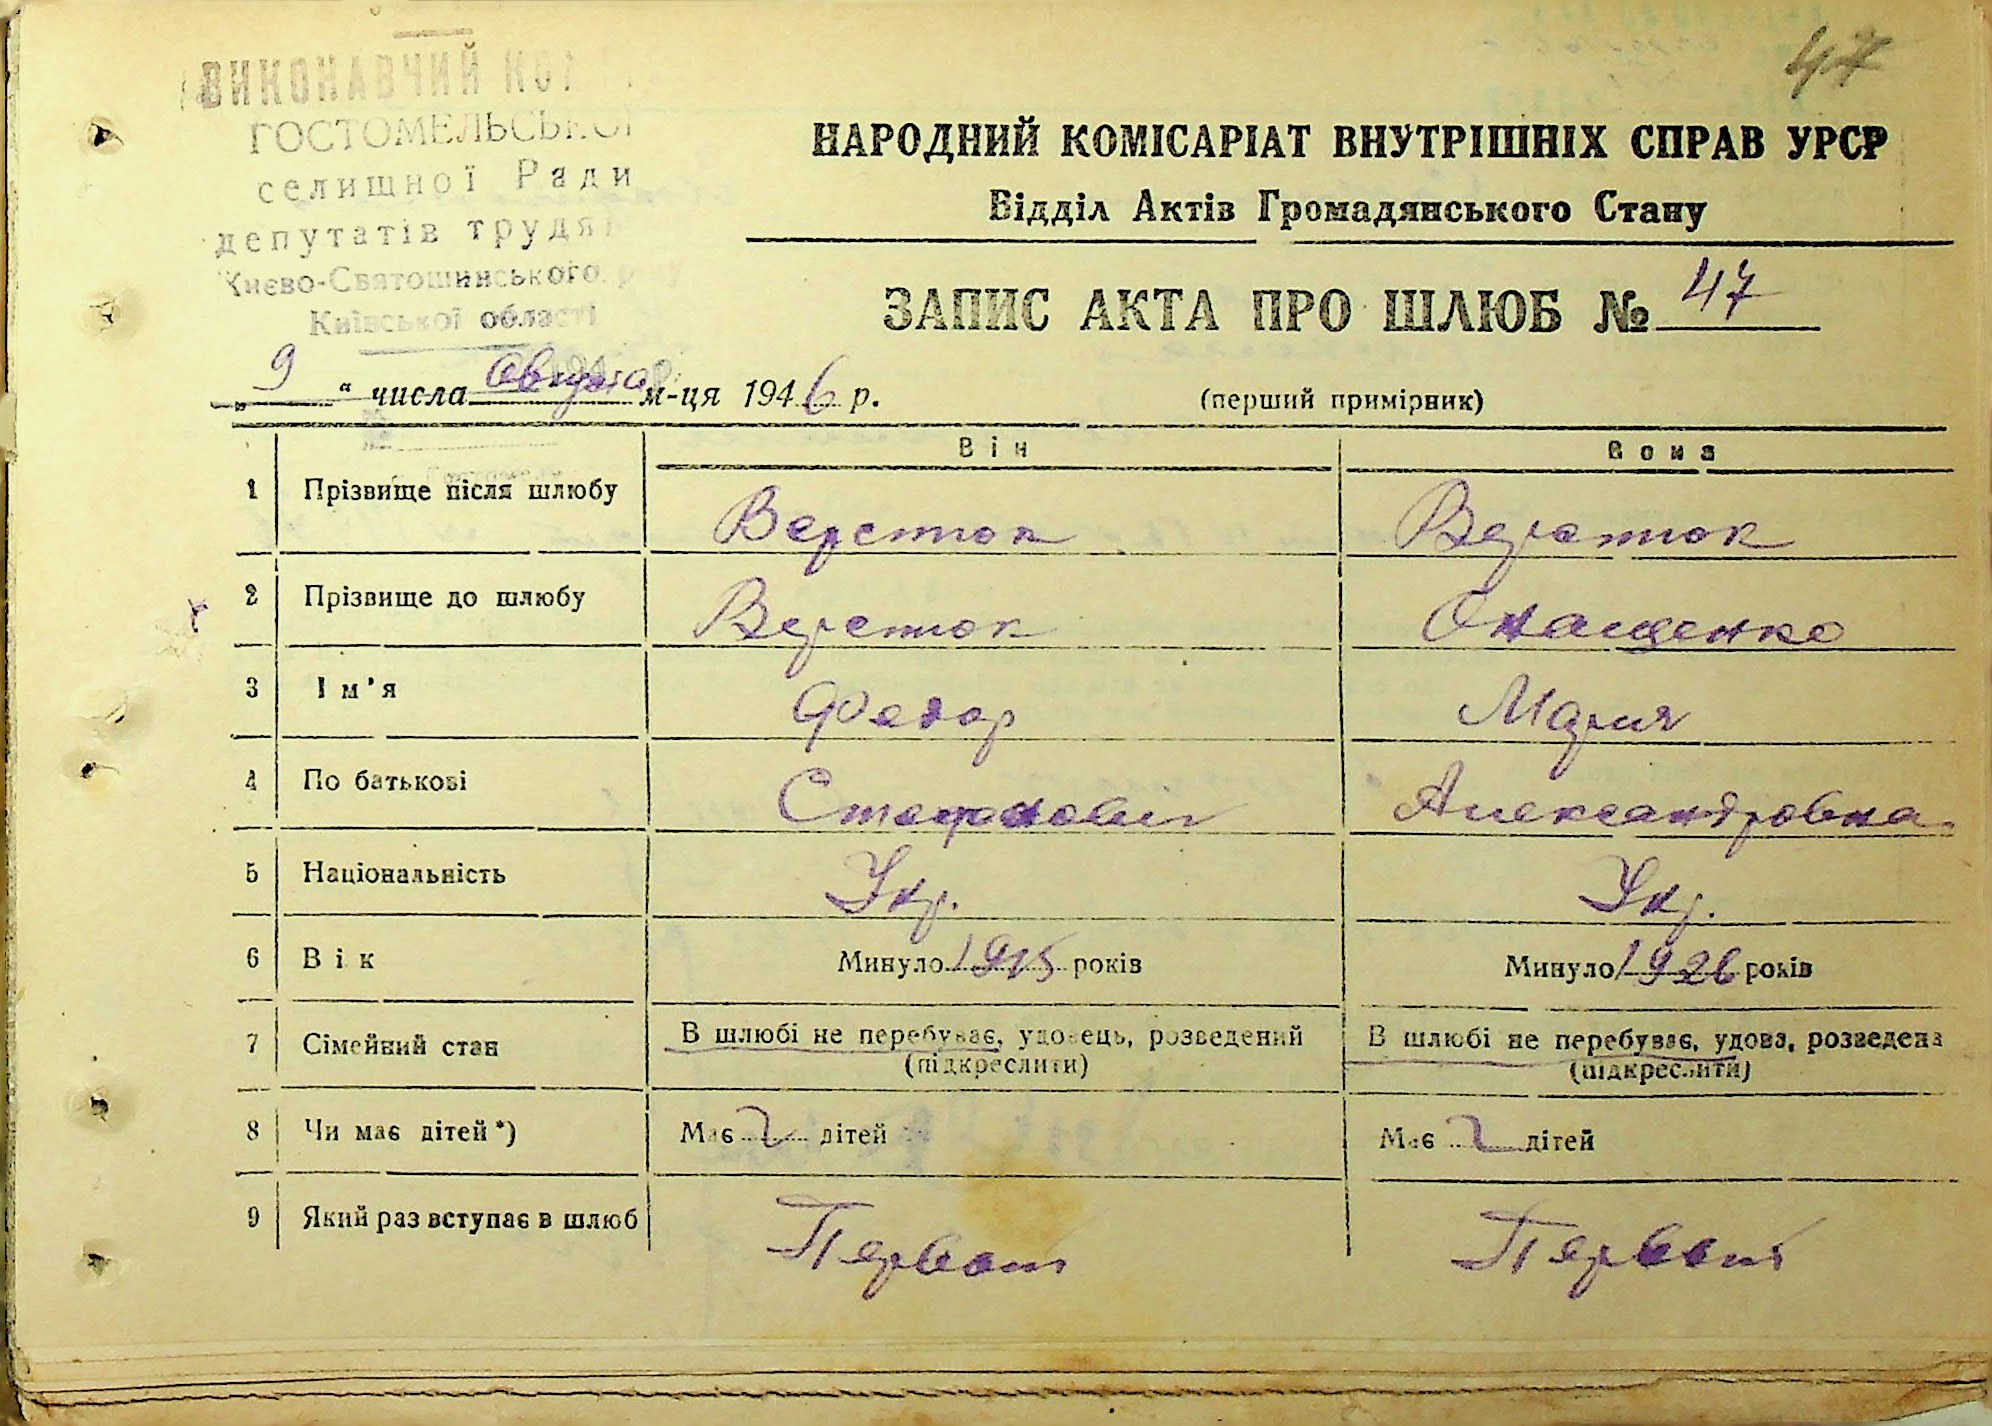 47
ВИКОНАВЧИЙ
ГОСТОМЕЛЬСЬКОЇ
селищної Ради
депутатів
Києво-Святошинського
Київської області
НАРОДНИЙ КОМІСАРІАТ ВНУТРІШНІХ СПРАВ УРСР
Відділ Актів Громадянського Стану
ЗАПИС АКТА ПРО ШЛЮБ № 47
„ 9 “ числа августа м-ця 1946 р.
(перший примірник)
Він Вона
1 Прізвище після шлюбу Верстюк Верстюк
2 Прізвище до шлюбу Верстюк Онащенко
3 Ім'я Федор Мария
4 По батькові Стафанович Александровна
5 Національність Укр. Укр.
6 Вік Минуло 1915 років Минуло 1926 років
7 Сімейний стан В шлюбі не перебуває, удовець, розведений В шлюбі не перебуває, удова, розведена
(підкреслити) (підкреслити)
8 Чи має дітей*) Має дітей Має дітей
9 Який раз вступає в шлюб Первый Первый